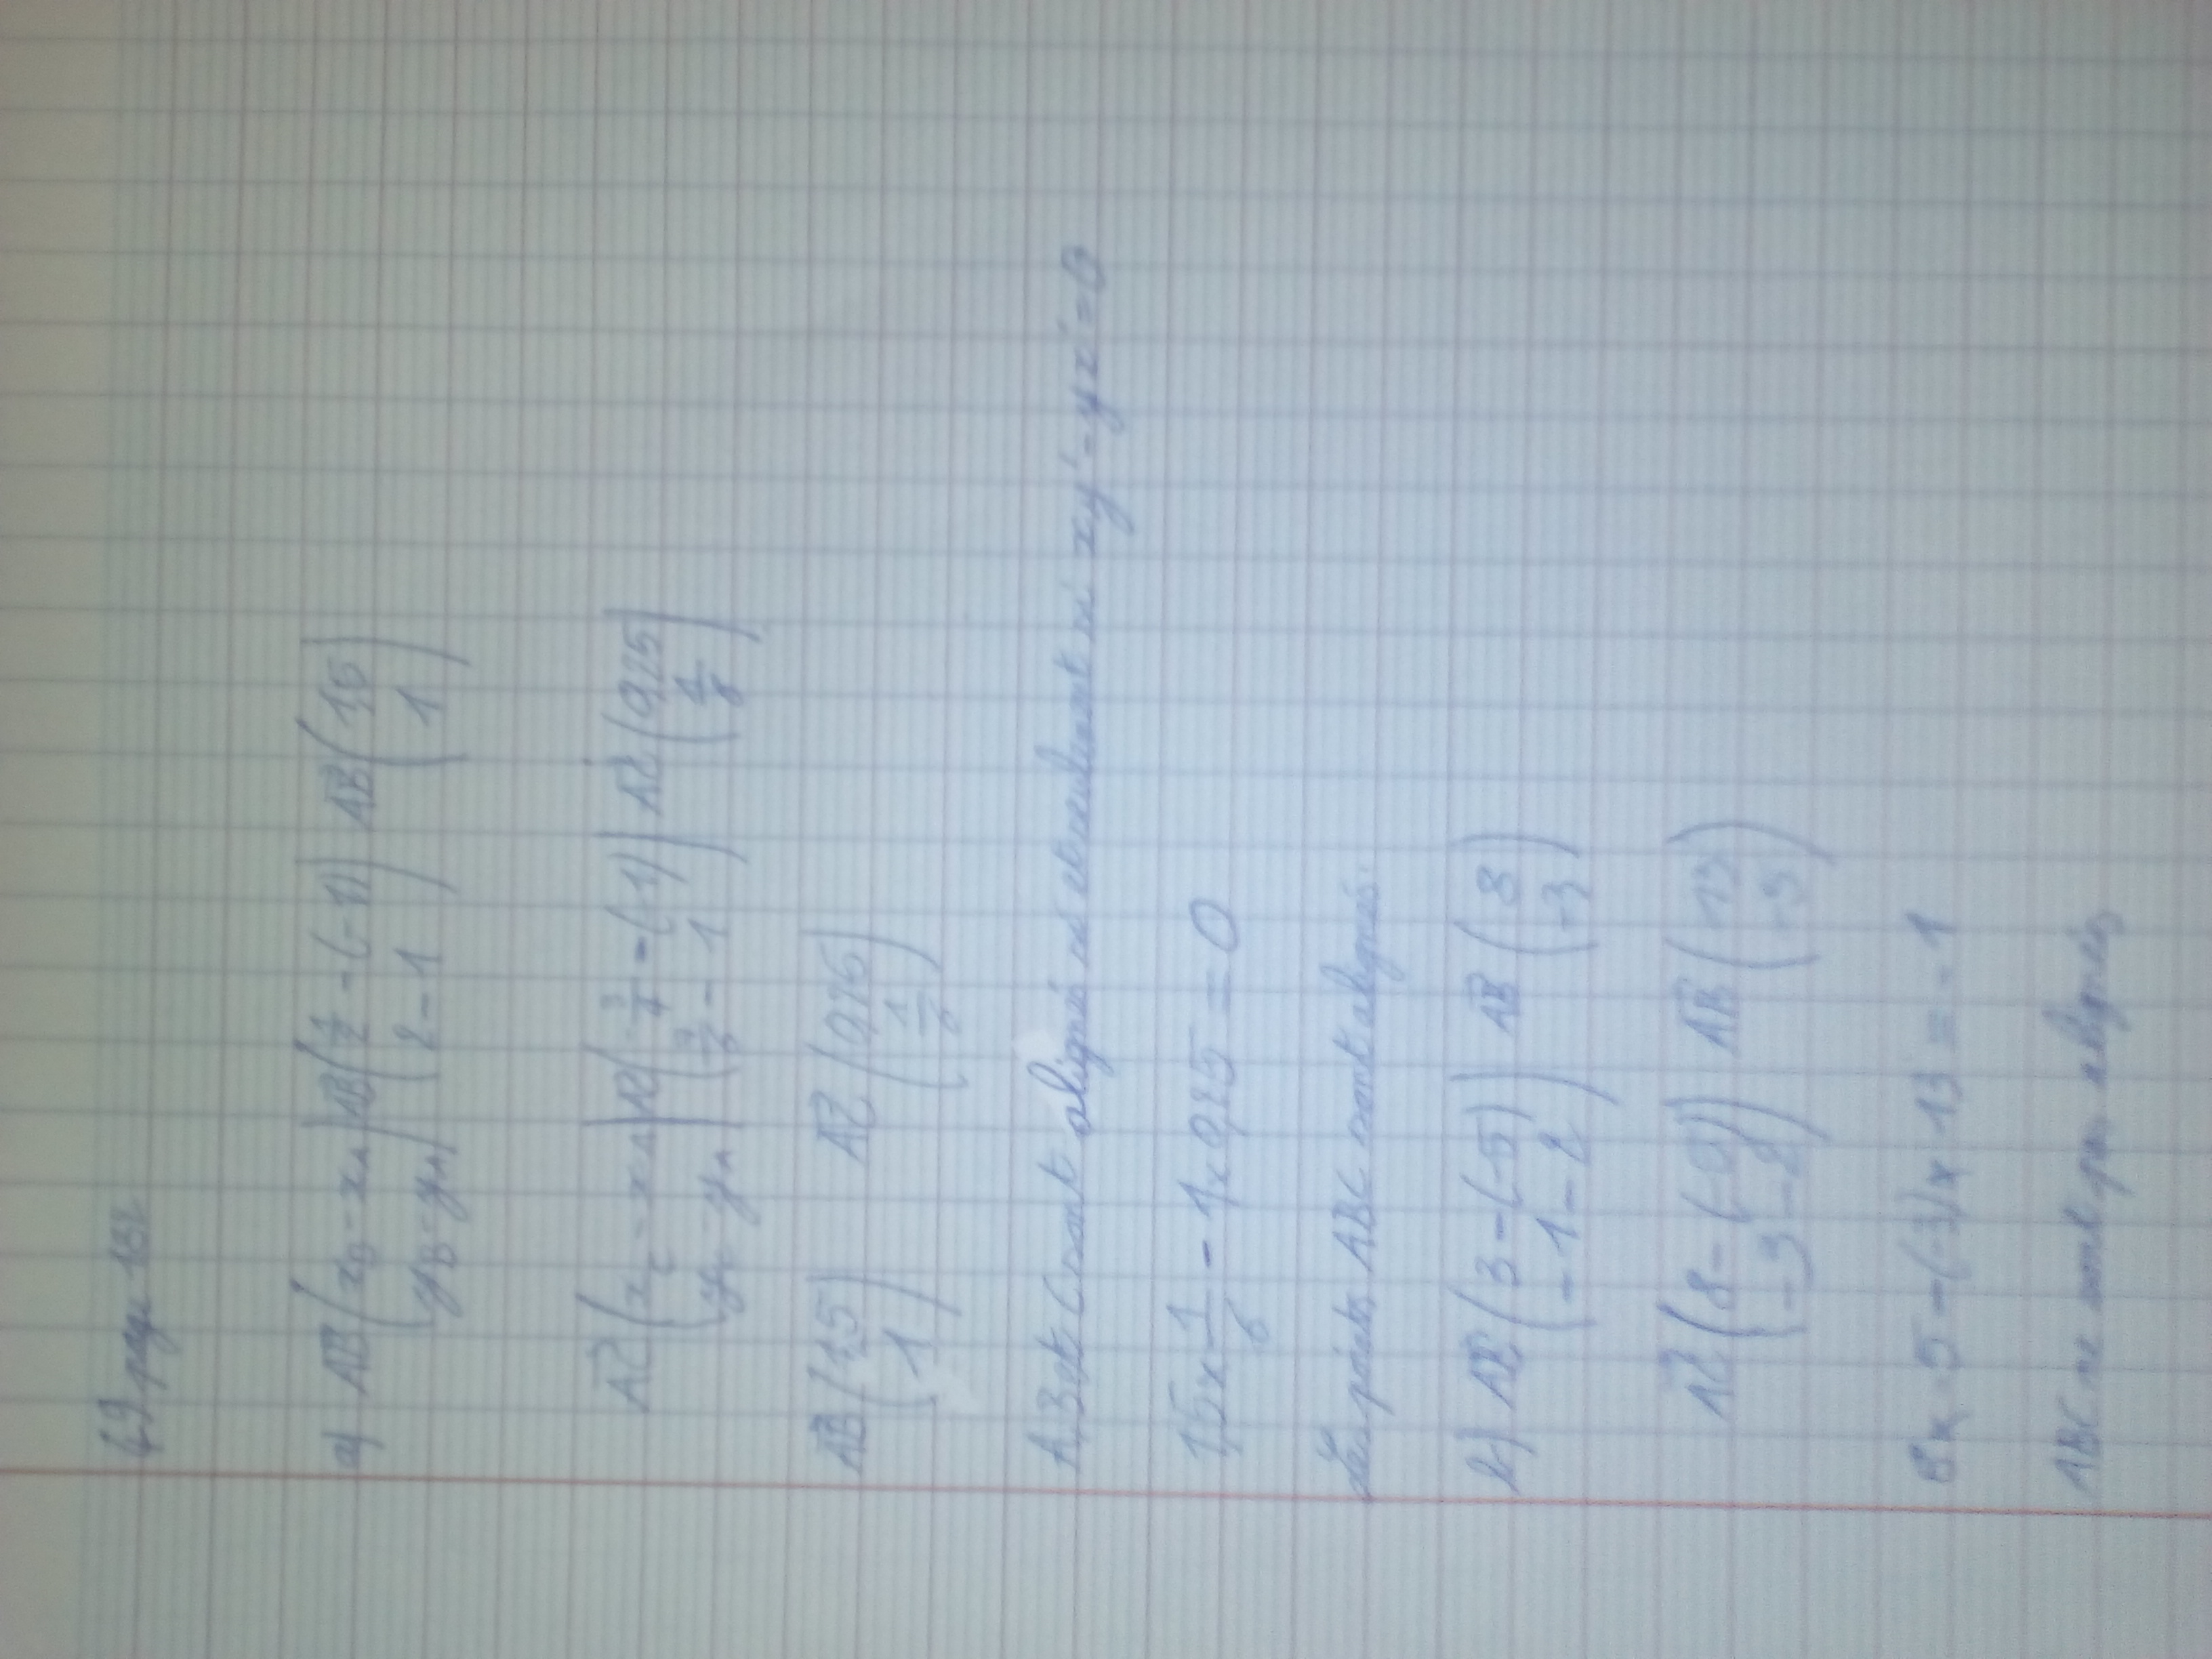 69 page 182
a) AB (xB - xA / yB - yA) AB (1/2 - (-1) / 2 - 1) AB (1,5 / 1)
AC (xC - xA / yC - yA) AC (-3/4 - (-1) / - 1) AC (0,25 / 1/6)
AB (1,5 / 1) AC (0,25 / 1/6)
A, B et C sont alignés si et seulement si xy' - yx' = 0
1,5 x 1/6 - 1 x 0,25 = 0
Les points ABC sont alignés.
AB (3 - (-5) / -1 - 2) AB (8 / -3)
AC (8 - (-5) / -3 - 2) AB (13 / -5)
8 x -5 - (-3) x 13 = -1
ABC ne sont pas alignés